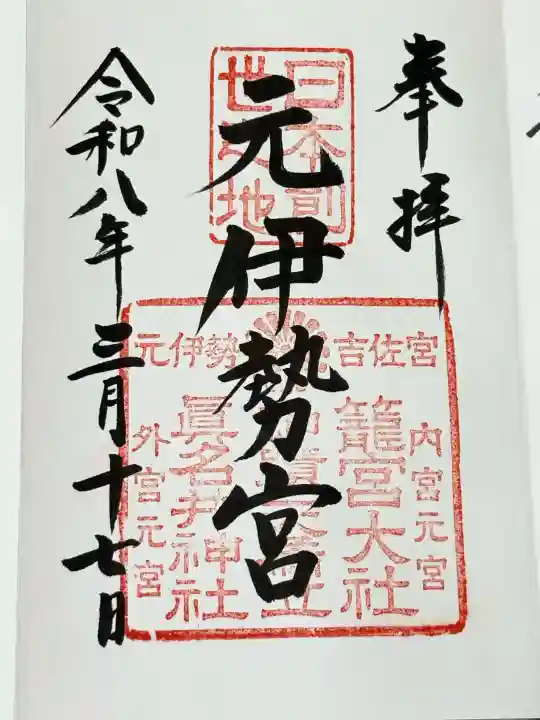 奉拝
元伊勢宮
令和八年三月十七日
日本
世
地
吉佐宮
元伊勢
内宮元宮
籠宮大社
眞名井神社
外宮元宮